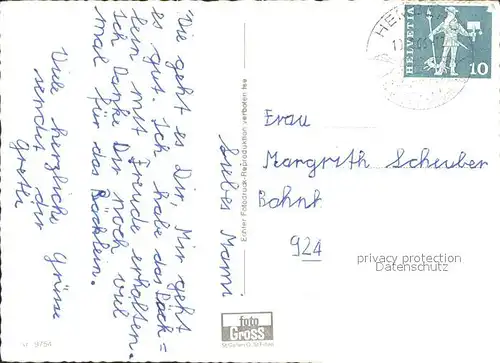 Liebes Mami.
Wie geht es Dir, Mir geht
es gut. Ich habe das Päck=
lein mit Freude erhalten.
Ich Danke Dir noch viel
mal für das Päcklein.
Viele herzliche Grüsse
sendet dir
Echter Fotodruck-Reproduktion verboten
HELVETIA
10
Frau
Margrith Scheuber
Bahnt
924
privacy protection
Datenschutz
foto
GROSS
St.Gallen
9754